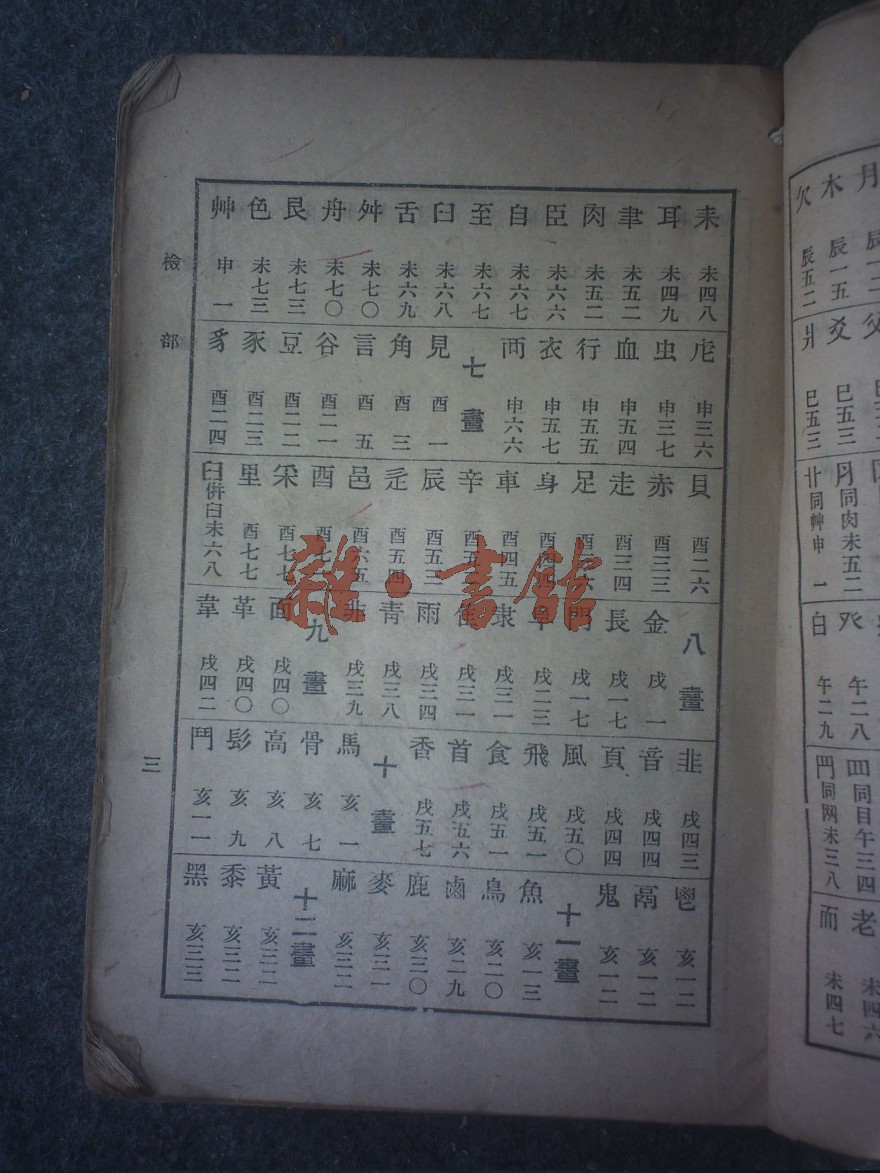 耒 未四八
耳 未四九
聿 未五二
肉 未五二
臣 未六六
自 未六七
至 未六七
臼 未六八
舌 未六九
舛 未七〇
舟 未七〇
艮 未七三
色 未七三
艸 申一
虍 申三六
虫 申三七
血 申五四
行 申五五
衣 申五七
襾 申六六
七畫
見 酉一
角 酉三
言 酉五
谷 酉二一
豆 酉二二
豕 酉二三
豸 酉二四
貝 酉二六
赤 酉三三
走 酉三四
足
身
車 酉四五
辛
辰 酉五三
辵 酉五四
邑 酉六五
酉
釆 酉七七
里 酉七七
臼併臼未六八
八畫
金 戌一
長 戌一七
門 戌一七
阜 戌二三
隶 戌三一
隹 戌三一
雨 戌三四
青 戌三八
非 戌三九
九畫
面 戌四〇
革 戌四〇
韋 戌四二
韭 戌四三
音 戌四四
頁 戌四四
風 戌五〇
飛 戌五一
食 戌五一
首 戌五六
香 戌五七
十畫
馬 亥一
骨 亥七
高 亥八
髟 亥九
鬥 亥一一
鬯 亥一二
鬲 亥一二
鬼 亥一二
十一畫
魚 亥一三
鳥 亥二〇
鹵 亥二九
鹿 亥三〇
麥 亥三一
麻 亥三二
十二畫
黃 亥三二
黍 亥三二
黑 亥三三
檢部
三
月
木 辰一五
欠 辰五二
爻 巳五三
爿 巳五三
同肉未五二
同艸申一
癶 午二八
白 午二九
罒同目午三四
同网未三八
老 未四六
而 未四七
雜·書館